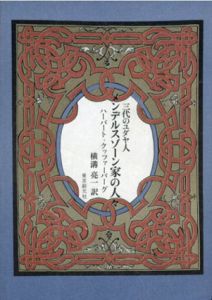 三代のユダヤ人
メンデルスゾーン家の人々
ハーバート・クッファーバーグ
横溝亮一訳
東京創元社